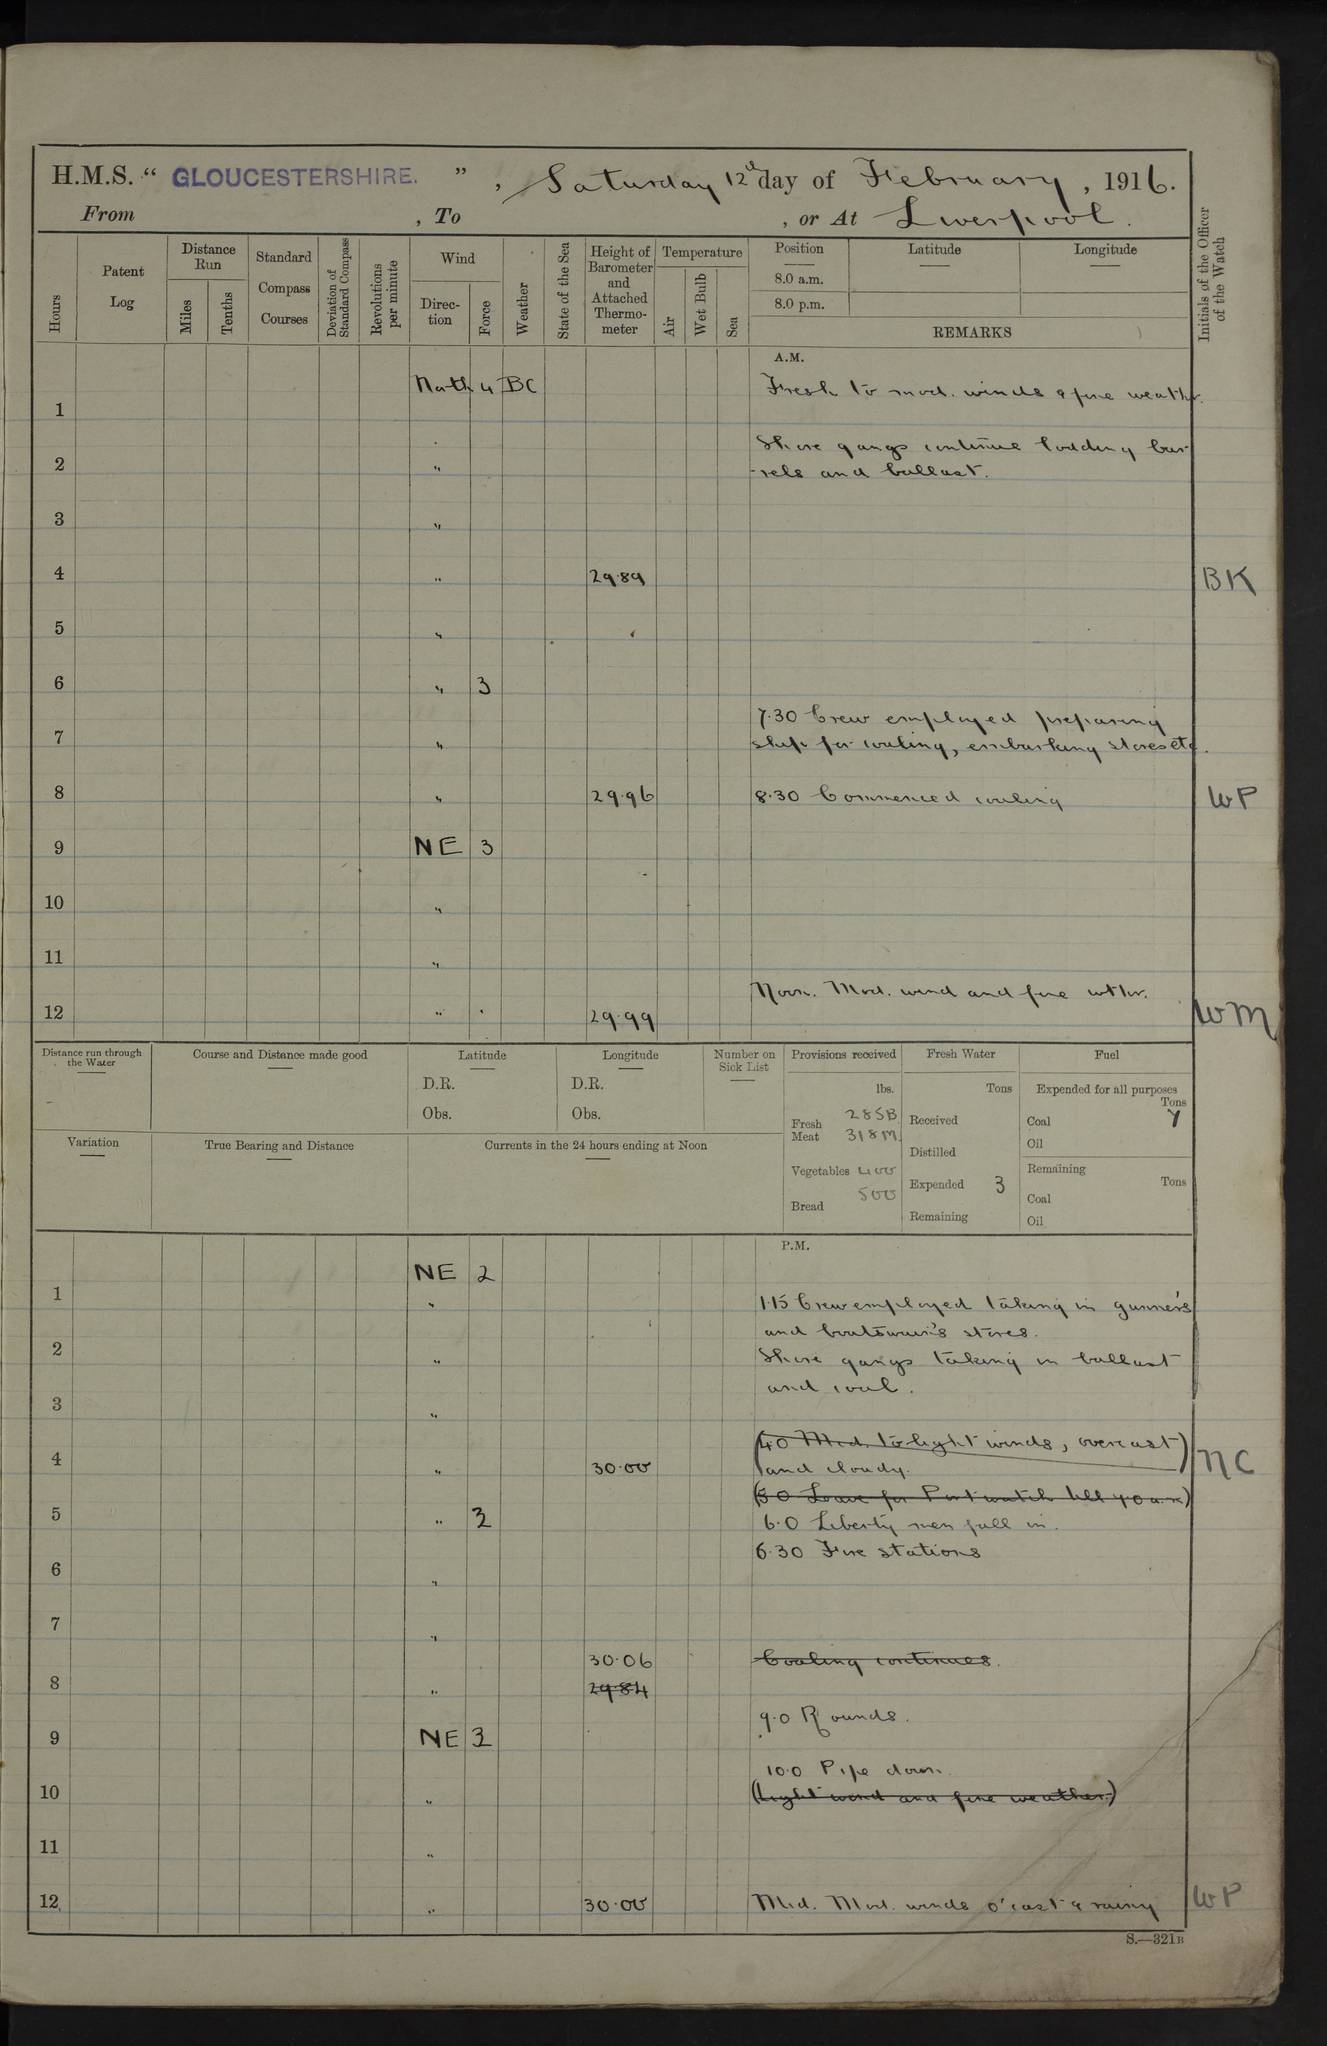 H.M.S. “ GLOUCESTERSHIRE. ” , Saturday 12th day of February , 1916.
From , To , or At Liverpool.
Hours
Patent Log
Distance Run
Miles
Tenths
Standard Compass Courses
Deviation of Standard Compass
Revolutions per minute
Wind
Direction
Force
Weather
State of the Sea
Height of Barometer and Attached Thermometer
Temperature
Air
Wet Bulb
Sea
Position Latitude Longitude
8.0 a.m.
8.0 p.m.
REMARKS
Initials of the Officer of the Watch
A.M.
North 4 BC Fresh to mod. winds & fine weathr.
1
Shore gangs continue loading bar-
2 " -rels and ballast.
3 "
4 " 29.89 BK
5 "
6 " 3
7.30 Crew employed preparing
7 " ship for coaling, embarking stores etc.
8 " 29.96 8.30 Commenced coaling WP
9 NE 3
10 "
11 "
Noon. Mod. wind and fine wthr.
12 " 29.99 WM
Distance run through the Water
Course and Distance made good
Latitude
D.R.
Obs.
Longitude
D.R.
Obs.
Number on Sick List
Variation
True Bearing and Distance
Currents in the 24 hours ending at Noon
Provisions received
lbs.
Fresh Meat 285B
318M
Vegetables 400
Bread 500
Fresh Water
Tons
Received
Distilled
Expended 3
Remaining
Fuel
Expended for all purposes
Tons
Coal 7
Oil
Remaining
Tons
Coal
Oil
P.M.
NE 2
1 " 1.15 Crew employed taking in gunner's
and boatswain's stores.
2 " Shore gangs taking in ballast
and coal.
3 "
(4.0 Mod. to light winds, overcast)
4 " 30.00 and cloudy. NC
(5.0 Leave for Port watch till 7.0 a.m)
5 " 3 6.0 Liberty men fall in.
6.30 Fire stations
6 "
7 "
30.06 Coaling continues.
8 " 29.84
9.0 Rounds.
9 NE 3
10.0 Pipe down.
10 " (Light wind and fine weather.)
11 "
12 " 30.00 Mid. Mod. winds o'cast & rainy WP
S.—321B